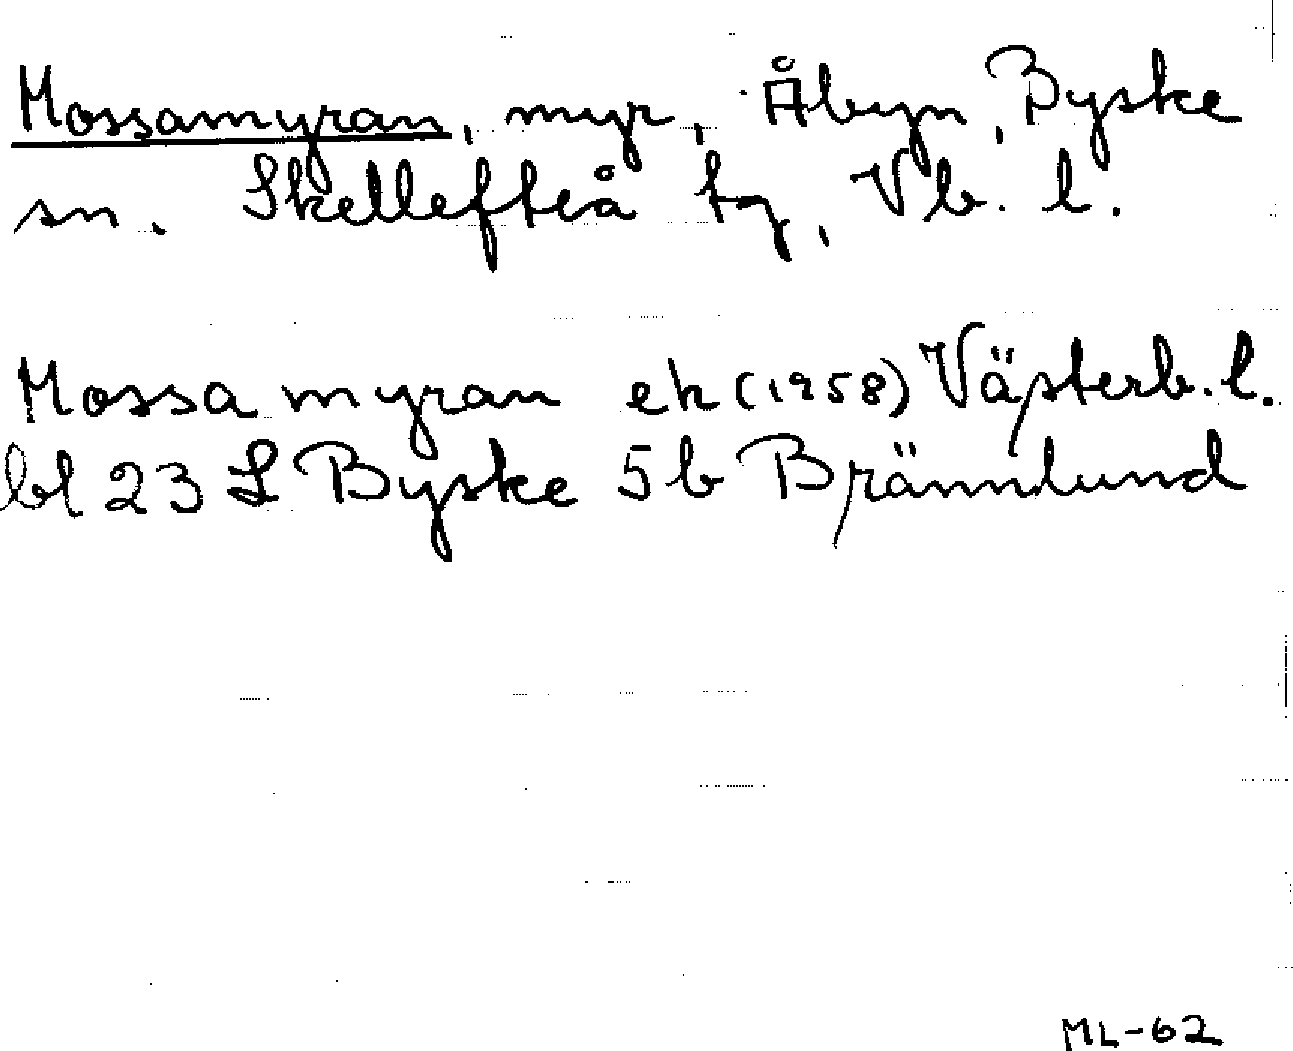 Mossamyran, myr, Åbyn, Byske
sn. Skellefteå tg, Vb. l.
Mossamyran ek (1958) Västerb. l.
bl 23 L Byske 5b Brännlund
ML-62